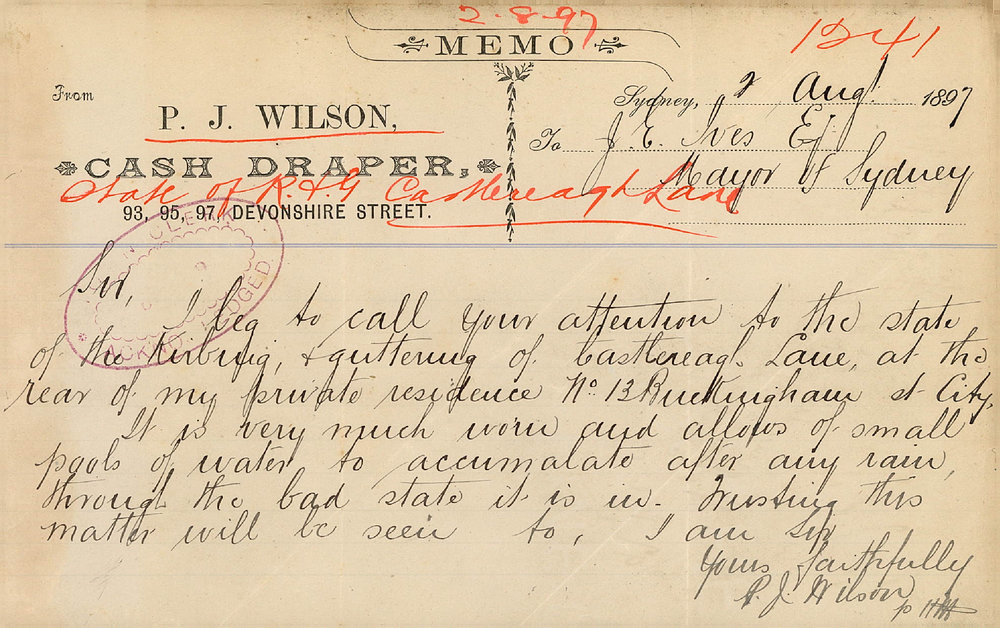 2-8-97
MEMO
1241
From
P. J. WILSON,
CASH DRAPER,
93, 95, 97, DEVONSHIRE STREET.
Sydney, 2 Augt. 1897
To J. E. Ives Esq
Mayor of Sydney
State of K & G Castlereagh Lane
CLERK
ACKNOWLEDGED.
Sir,
I beg to call your attention to the state
of the Kerbing, & guttering of Castlereagh Lane, at the
rear of my private residence No. 13 Buckingham st City.
It is very much worn and allows of small
pools of water to accumalate after any rain,
through the bad state it is in. Trusting this
matter will be seen to, I am Sir
Yours faithfully
P. J. Wilson
p